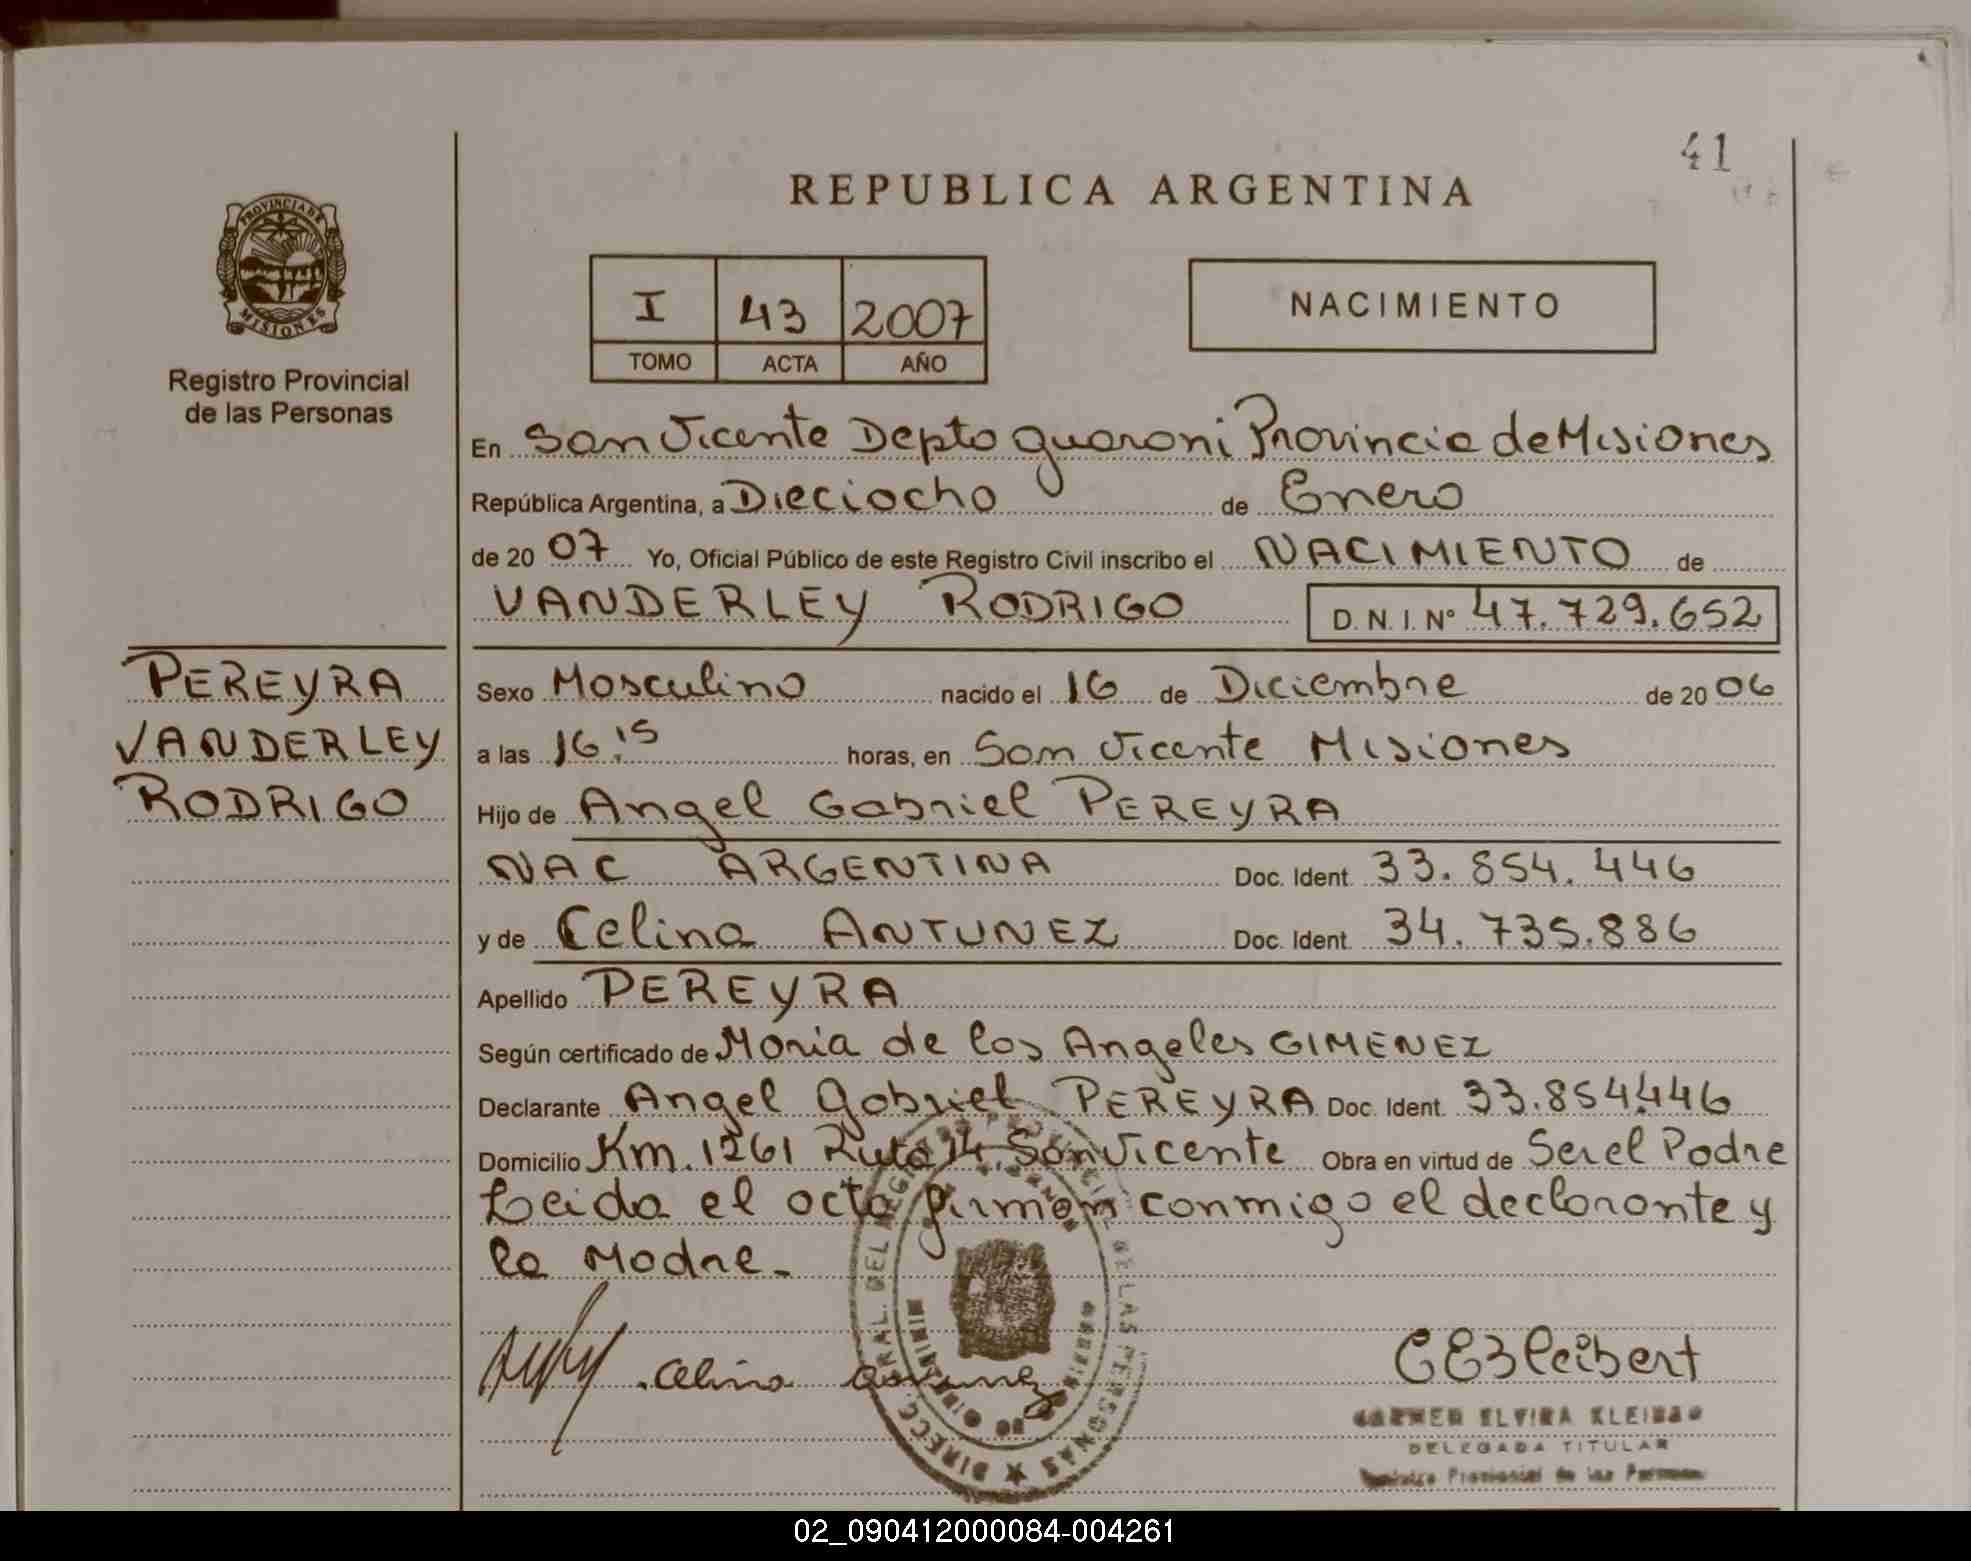 41
REPUBLICA ARGENTINA
PROVINCIA DE
MISIONES
Registro Provincial
de las Personas
I 43 2007
TOMO ACTA AÑO
NACIMIENTO
En San Vicente Depto guarani Provincia de Misiones
República Argentina, a Dieciocho de Enero
de 2007 Yo, Oficial Público de este Registro Civil inscribo el NACIMIENTO de
VANDERLEY RODRIGO D.N.I. Nº 47.729.652
PEREYRA
VANDERLEY
RODRIGO
Sexo Masculino nacido el 16 de Diciembre de 2006
a las 16:15 horas, en San Vicente Misiones
Hijo de Angel Gabriel PEREYRA
NAC ARGENTINA Doc. Ident. 33.854.446
y de Celina ANTUNEZ Doc. Ident. 34.735.886
Apellido PEREYRA
Según certificado de Maria de los Angeles GIMENEZ
Declarante Angel Gabriel PEREYRA Doc. Ident. 33.854.446
Domicilio Km. 1261 Ruta 14 San Vicente Obra en virtud de Ser el Padre
Leida el acta firman conmigo el declarante y
la Madre.-
Celina Antunez
DELEGADA TITULAR
Registro Provincial de las Personas
02_090412000084-004261